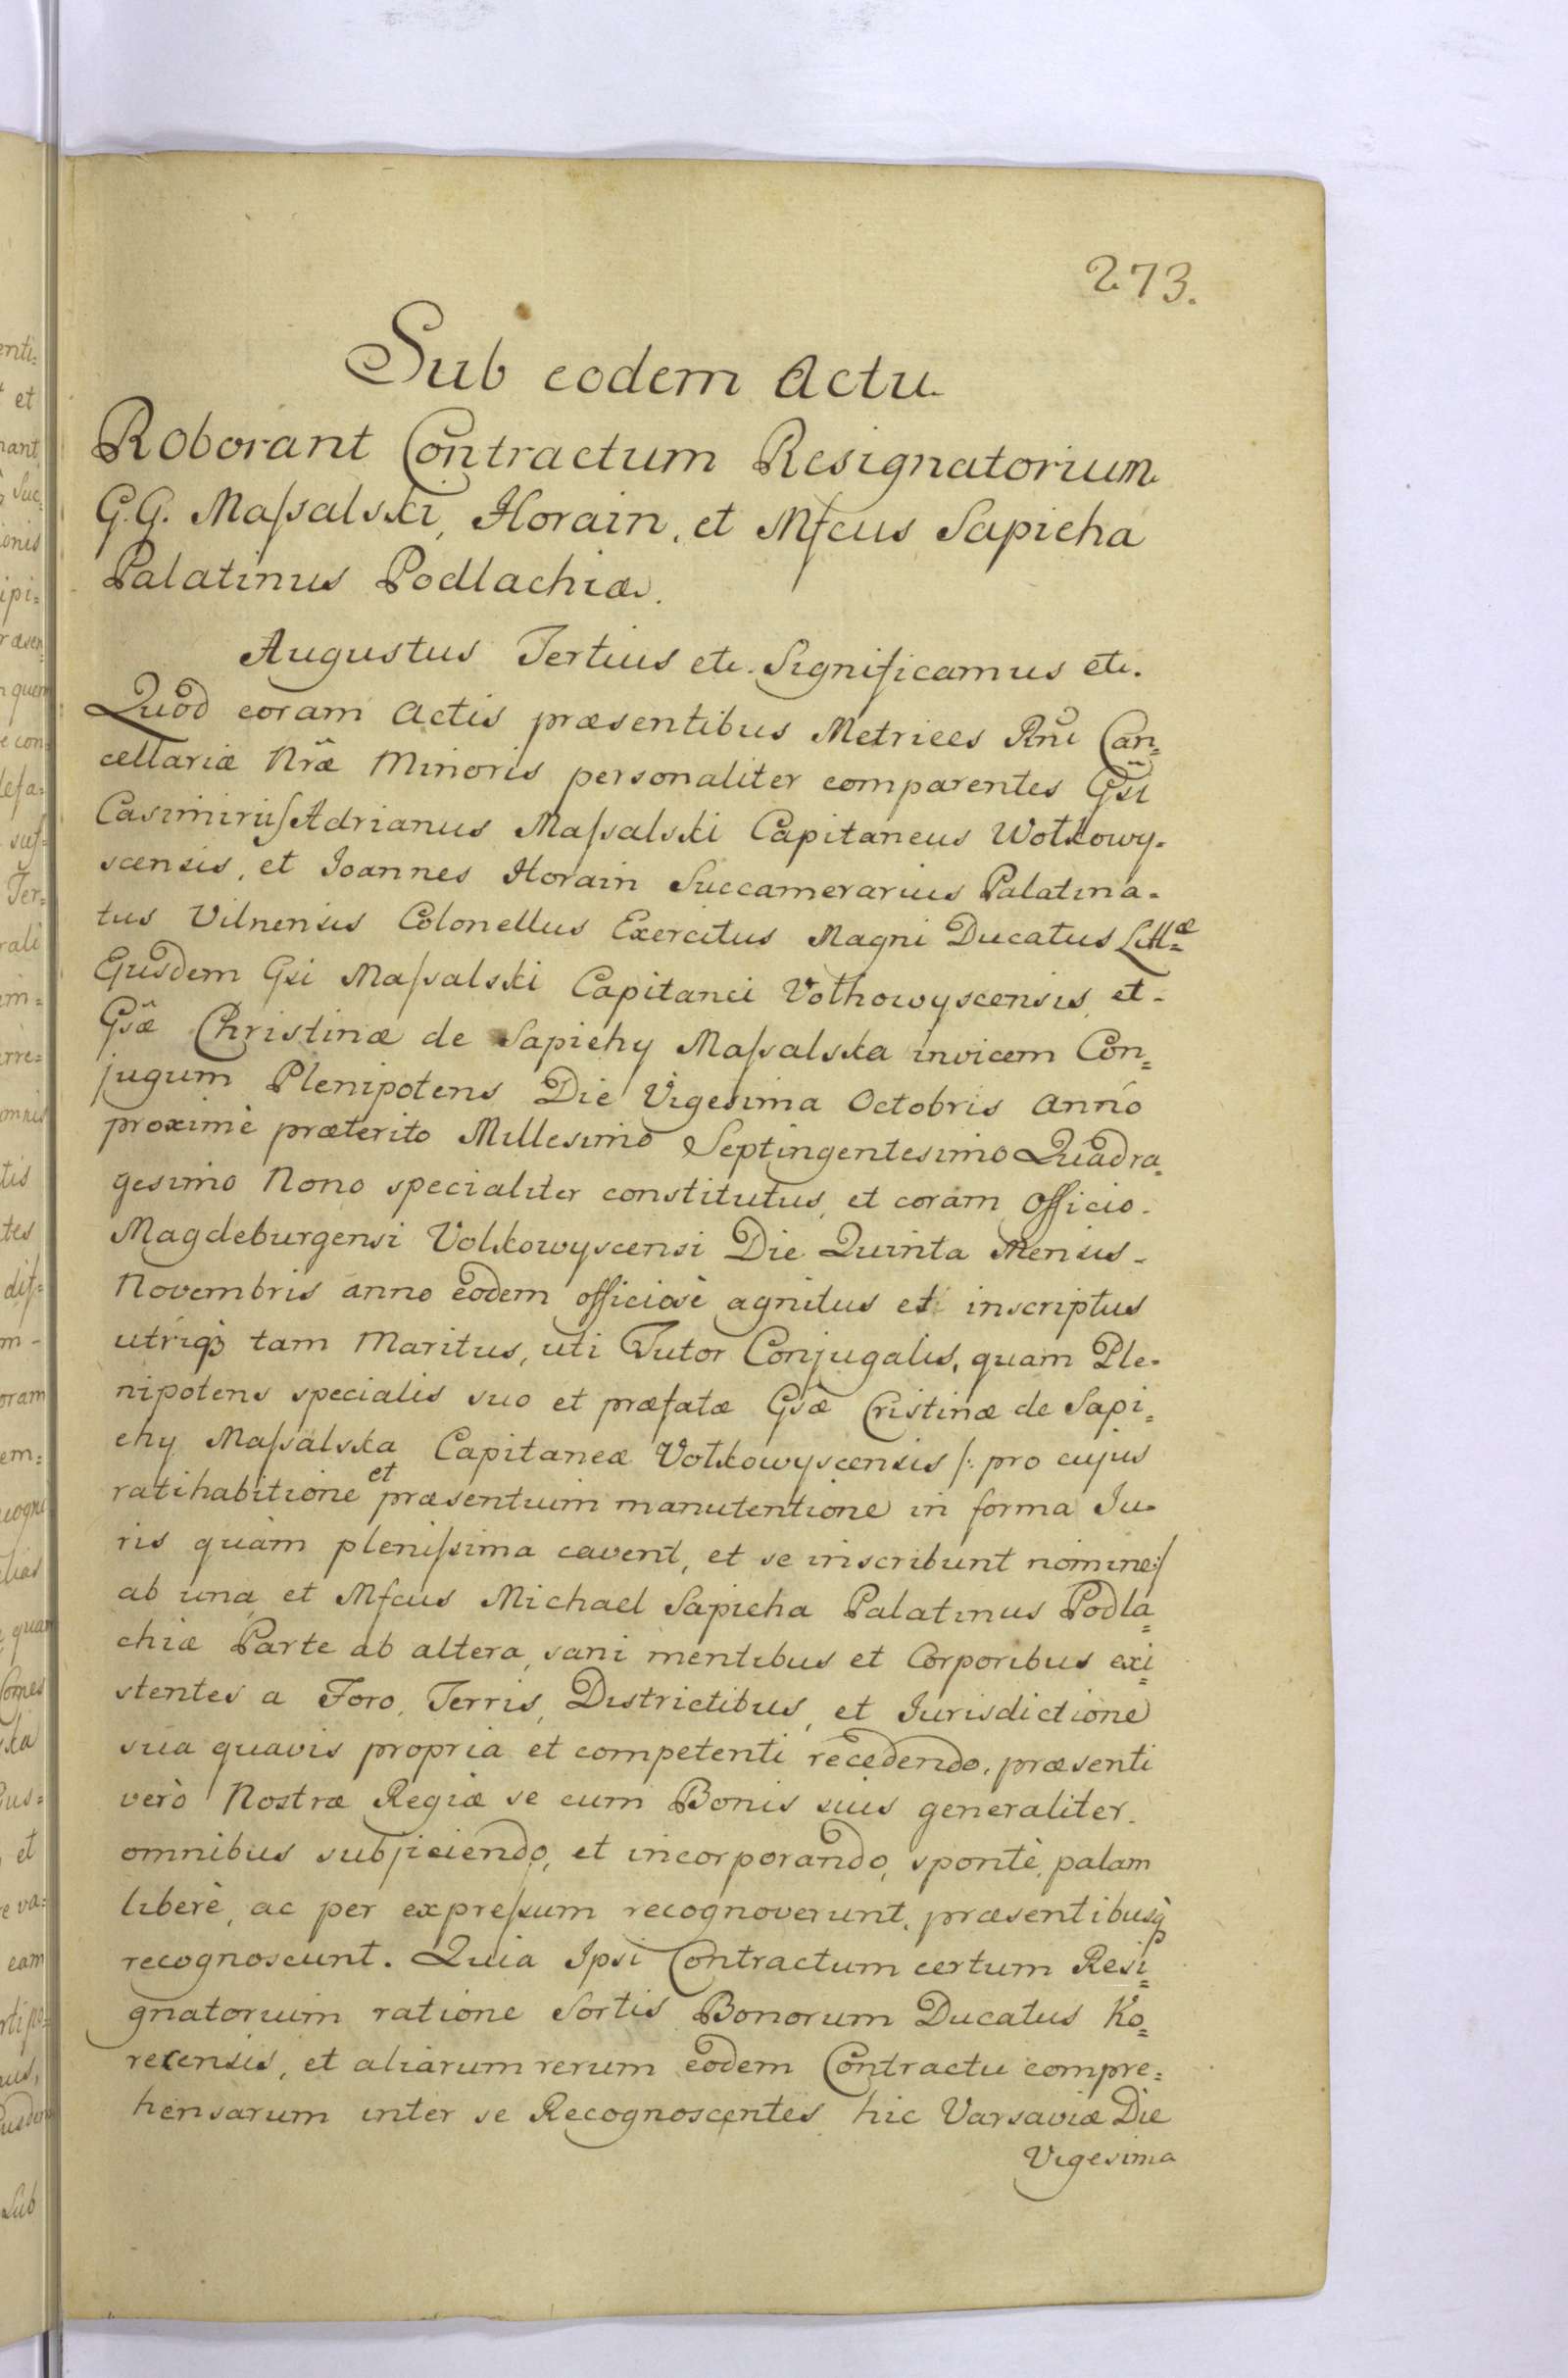 273.
Sub eodem Actu
Roborant Contractum Resignatorium
G.G. Maſsalski, Horain, et Mfcus Sapieha
Palatinus Podlachiæ.
Augustus Tertius etc. Significamus etc.
Quod coram Actis præsentibus Metrices Rni Can=
cellariæ Nrae Minoris personaliter comparentes Gsi
Casimirus Adrianus Maſsalski Capitaneus Wołkowy-
scensis, et Joannes Horain Succamerarius Palatina-
tus Vilnensis Colonellus Exercitus Magni Ducatus Litt=æ
Ejusdem Gsi Maſsalski Capitanei Vothowyscensis, et-
Gsæ Christinæ de Sapiehy Maſsalska invicem Con=
jugum Plenipotens Die Vigesima Octobris Anno
proximè præterito Millesimo Septingentesimo Quadra=
gesimo Nono specialiter constitutus, et coram Officio.
Magdeburgensi Volkowyscensi Die Quinta Mensis-
Novembris anno eodem officiosè agnitus et inscriptus
utriq3 tam Maritus, uti Tutor Conjugalis, quam Ple-
nipotens specialis suo et præfatæ Gsæ Cristinæ de Sapi=
ehy Maſsalska Capitaneæ Vołkowyscensis /: pro cujus
ratihabitione et præsentium manutentione in forma Ju-
ris quàm pleniſsima cavent, et se inscribunt nomine:/
ab una et Mfcus Michael Sapieha Palatinus Podla=
chiæ Parte ab altera, sani mentibus et Corporibus exi=
stentes a Foro, Terris, Districtibus, et Jurisdictione
sua quavis propria et competenti recedendo, præsenti
verò Nostræ Regiæ se cum Bonis suis generaliter.
omnibus subjiciendo, et incorporando, spontè, palam
liberè, ac per expreſsum recognoverunt, præsentibusq
recognoscunt. Quia Ipsi Contractum certum Resi=
gnatorium ratione Sortis Bonorum Ducatus Ko=
recensis, et aliarum rerum eodem Contractu compre=
hensarum inter se Recognoscentes hic Varsaviæ Die
Vigesima